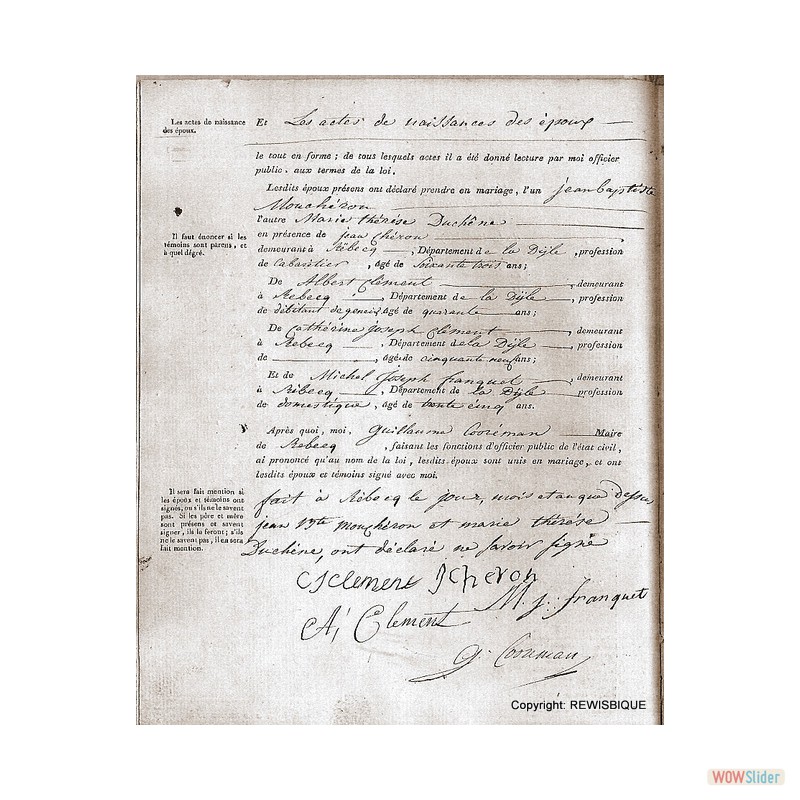 Les actes de naissance
des époux.
Et Les actes de naissances des époux
le tout en forme ; de tous lesquels actes il a été donné lecture par moi officier
public, aux termes de la loi.
Lesdits époux présens ont déclaré prendre en mariage, l'un jean baptiste
Mouchéron
l'autre Marie thérèse Duchêne
Il faut énoncer si les
témoins sont parens, et
à quel dégré.
en présence de jean Chéron
demeurant à Rébecq, Département de la Dÿle, profession
de Cabaretier, âgé de Soixante trois ans ;
De Albert Clément, demeurant
à Rebecq, Département de la Dÿle, profession
de débitant de genei, âgé de quarante ans ;
De Cathérine joseph Clément, demeurant
à Rebecq, Département de la Dÿle, profession
de, âgé de cinquante neuf ans ;
Et de Michel joseph franquet, demeurant
à Rébecq, Département de la Dÿle profession
de domestique, âgé de trente cinq ans.
Après quoi, moi, Guillaume Cooréman Maire
de Rebecq, faisant les fonctions d'officier public de l'état civil,
ai prononcé qu'au nom de la loi, lesdits époux sont unis en mariage, et ont
lesdits époux et témoins signé avec moi.
Il sera fait mention si
les époux et témoins ont
signés, ou s'ils ne le savent
pas. Si les père et mère
sont présens et savent
signer, ils la feront; s'ils
ne le savent pas, il en sera
fait mention.
fait à Rébecq le jour, mois et an que dessus
jean Bte Mouchéron et marie thérése
Duchêne, ont déclaré ne savoir signé
CJ Clement J Cheron
M. j. franquet
A, Clement
g. Cooreman
Copyright: REWISBIQUE
WOWSlider